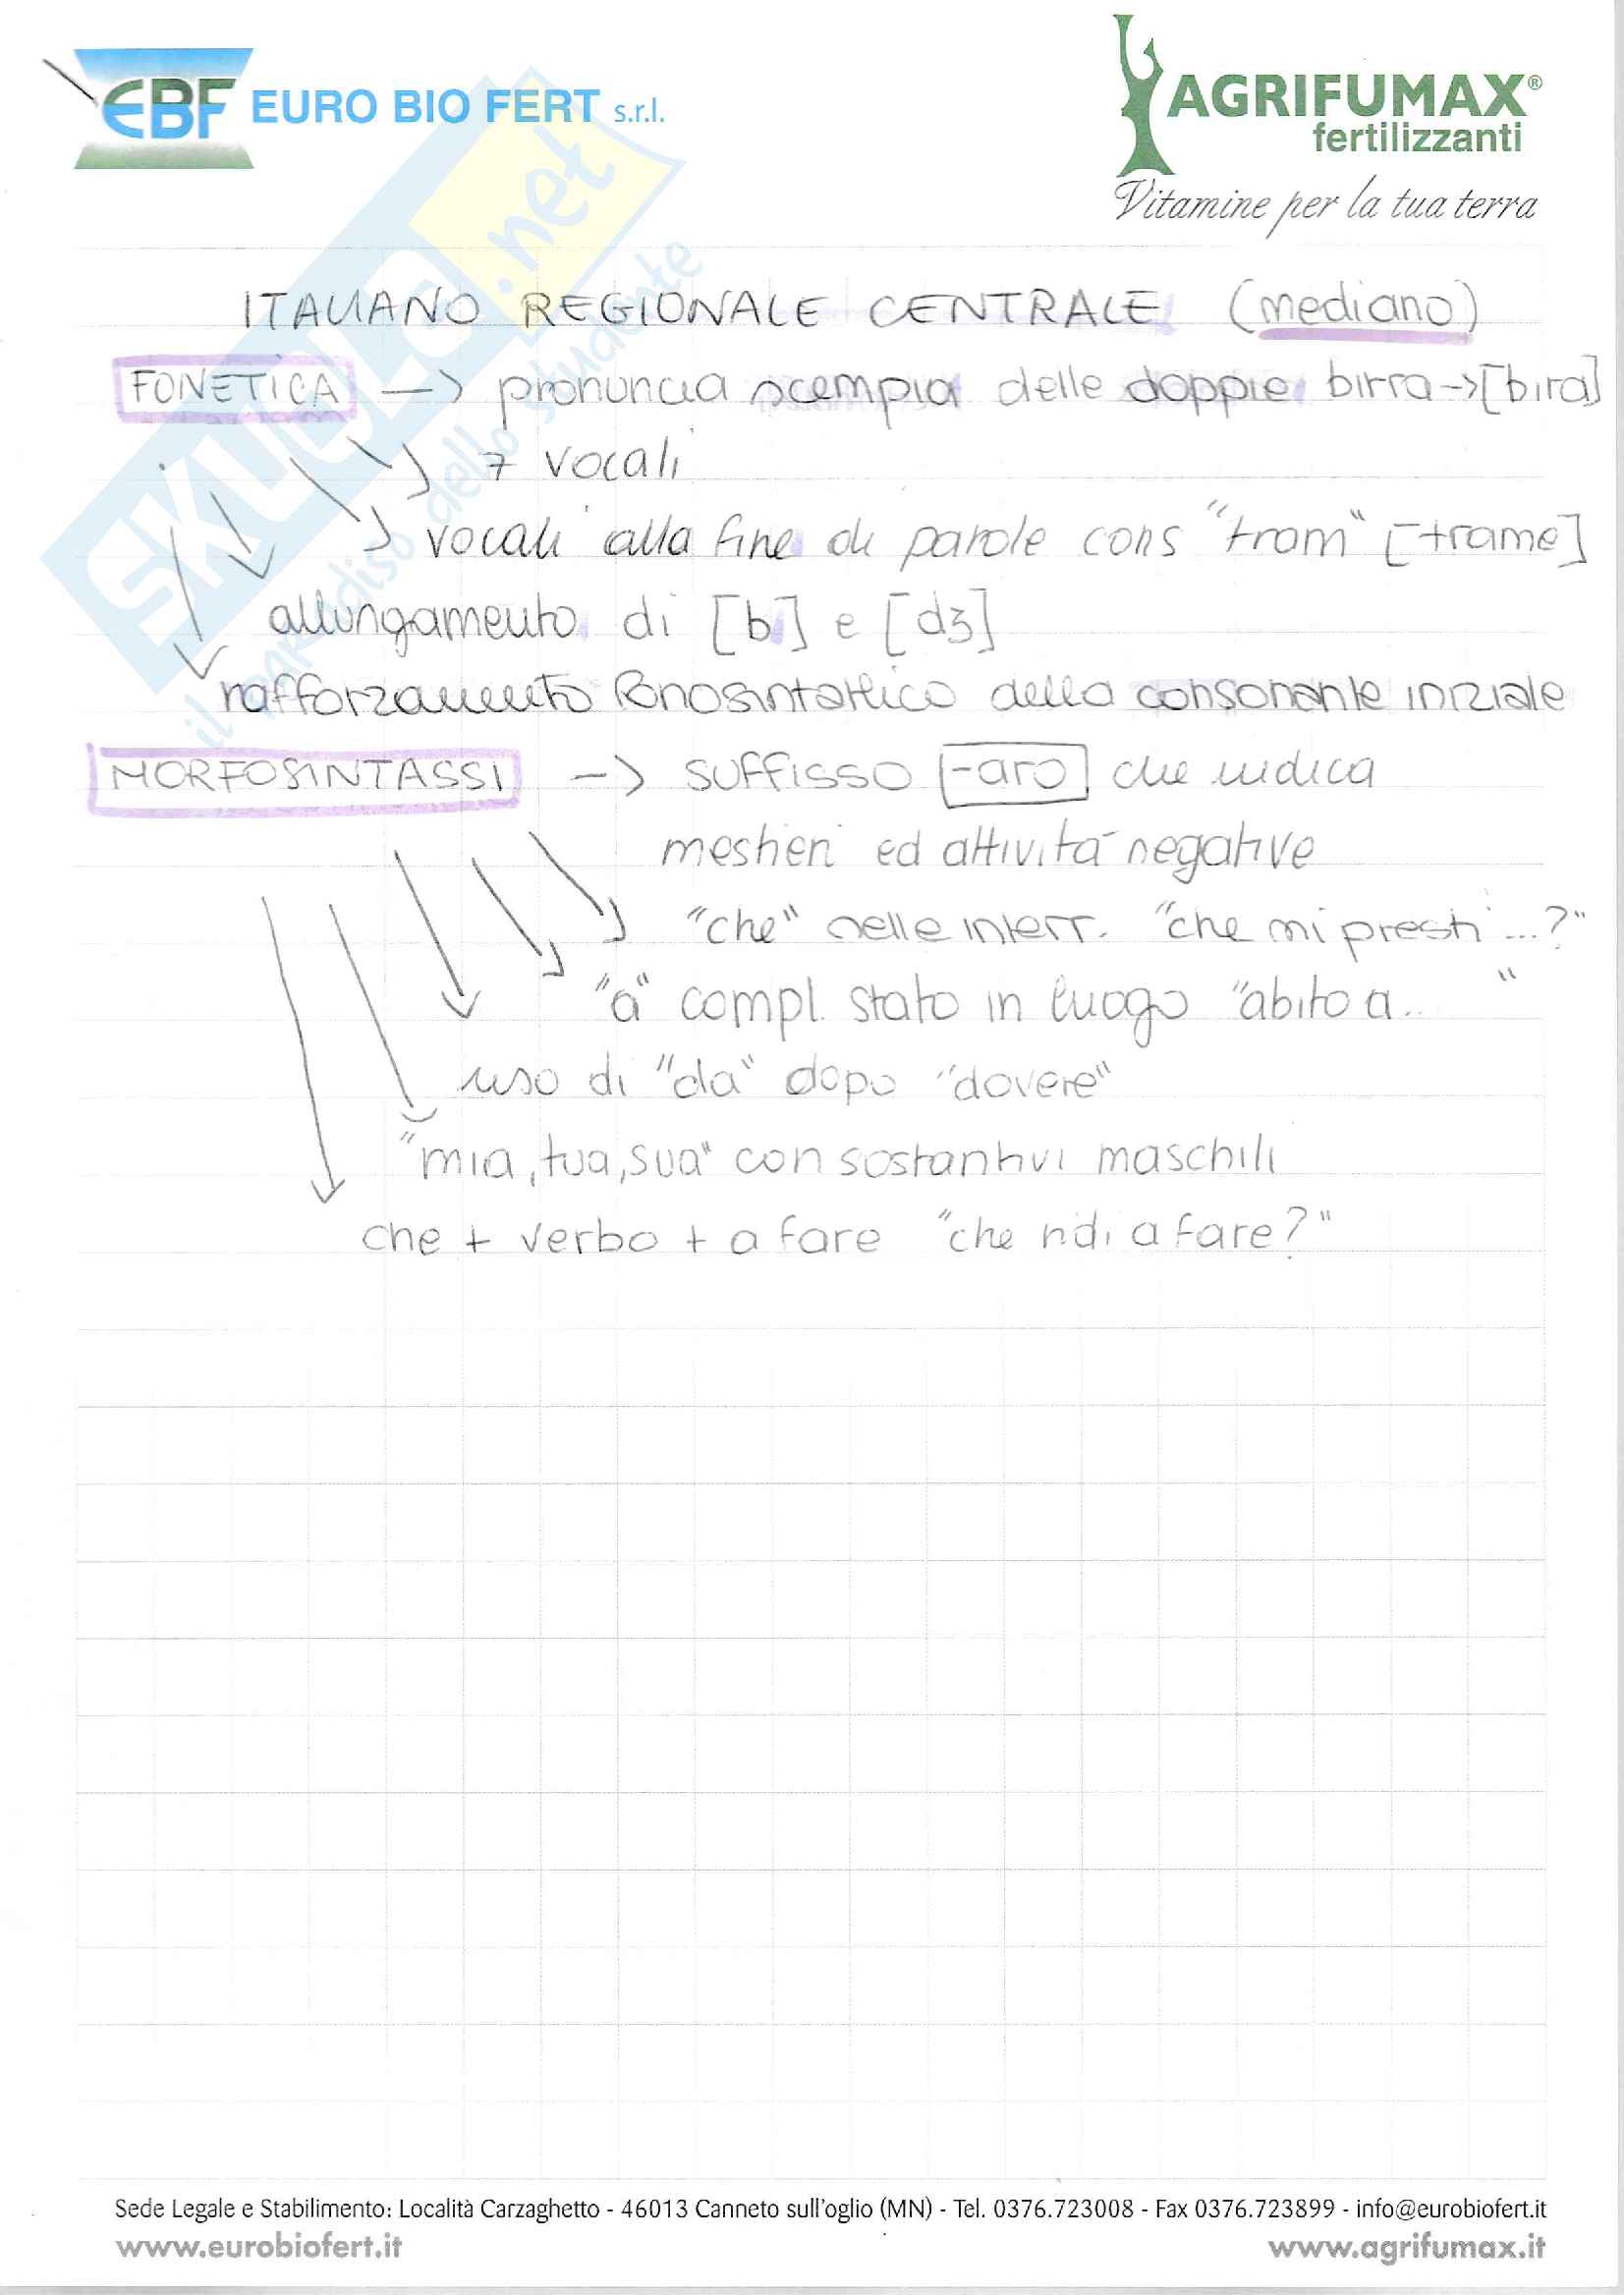 EBF EURO BIO FERT s.r.l.
AGRIFUMAX®
fertilizzanti
Vitamine per la tua terra
SKUOLA.net
il paradiso dello studente
ITALIANO REGIONALE CENTRALE (mediano)
FONETICA —> pronuncia scempia delle doppie birra->[bira]
7 vocali
vocali alla fine di parole cons "tram" [trame]
allungamento di [b] e [dʒ]
rafforzamento fonosintattico della consonante iniziale
MORFOSINTASSI —> suffisso -aro che indica
mestieri ed attività negative
"che" nelle interr. "che mi presti ...?"
"a" compl. stato in luogo "abito a.. "
uso di "da" dopo "dovere"
"mia, tua, sua" con sostantivi maschili
che + verbo + a fare "che ridi a fare?"
Sede Legale e Stabilimento: Località Carzaghetto - 46013 Canneto sull'oglio (MN) - Tel. 0376.723008 - Fax 0376.723899 - info@eurobiofert.it
www.eurobiofert.it www.agrifumax.it